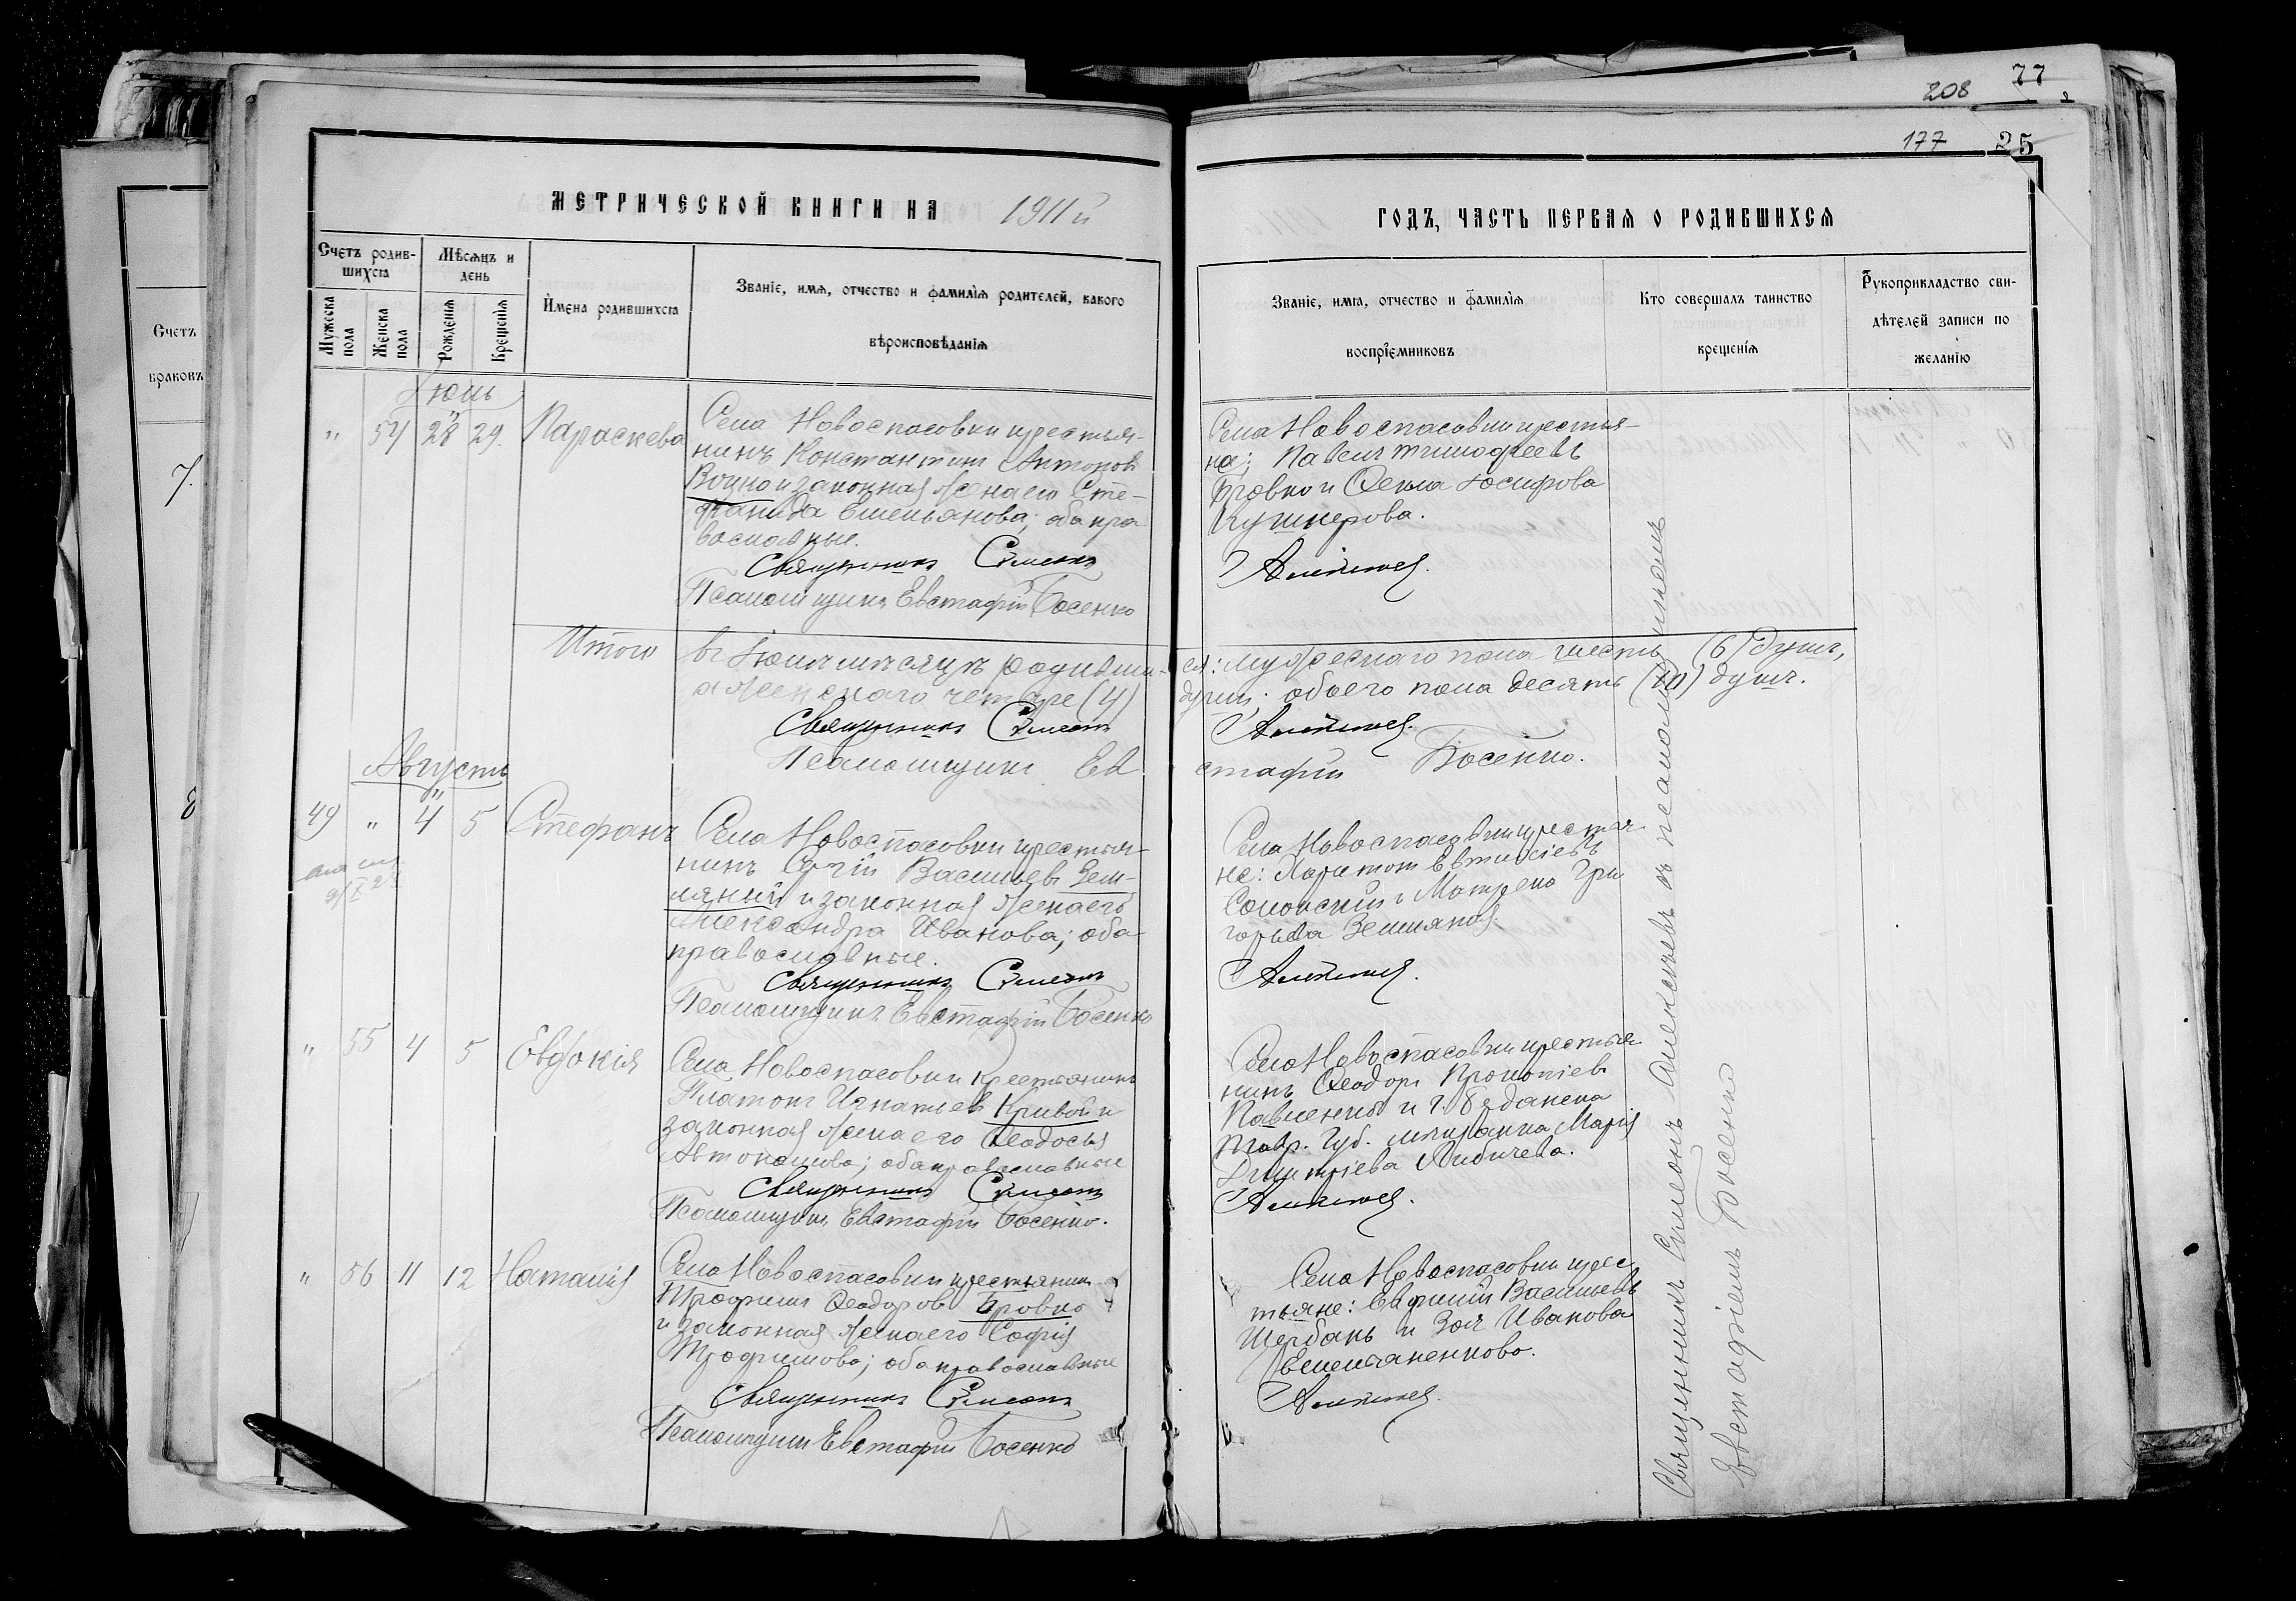 77
208
177 25
МЕТРИЧЕСКОЙ КНИГИ НА 1911 й
ГОДЪ, ЧАСТЬ ПЕРВАЯ О РОДИВШИХСЯ
Счетъ родив-
шихся
Мѣсяцъ и
день
Мужеска
пола
Женска
пола
Рожденія
Крещенія
Имена родившихся
Званіе, имя, отчество и фамилія родителей, какого
вѣроисповѣданія
Званіе, имя, отчество и фамилія
воспріемниковъ
Кто совершалъ таинство
крещенія
Рукоприкладство сви-
дѣтелей записи по
желанію
Счетъ
браковъ
7.
8
Іюль
" 54 28 29. Параскева
Села Новоспасовки крестья-
нинъ Константинъ Антоновъ
и законная жена его Сте-
фанида Емельянова; оба пра
вославные.
Священникъ Сѵмеонъ
Псаломщикъ Евстафій Босенко
Села Новоспасовки крестья-
не: Павелъ Тимофеевъ
Бровко и Ѳекла Іосифова
Кушнерова.
Итого въ Іюлѣ мѣсяцѣ родивши-
ся: мужескаго пола шесть (6) душъ,
а женскаго четыре (4)
душъ; обоего пола десять (10) душъ.
Священникъ Сѵмеонъ
Псаломщикъ Ев
стафій Босенко.
Августъ
49 " 4 5 Стефанъ
Села Новоспасовки крестья-
нинъ Васильевъ Зем-
ляный и законная жена его
Александра Иванова; оба
православные.
Священникъ Сѵмеонъ
Псаломщикъ Евстафій Босенко
Села Новоспасовки крестья
не: Харитонъ Евтихіевъ
и Матрена Гри
горьева Земляная.
" 55 4 5 Евдокія
Села Новоспасовки крестьянинъ
Платонъ Игнатіевъ Кривой и
законная жена его Ѳеодосья
Автономова; оба православные
Священникъ Сѵмеонъ
Псаломщикъ Евстафій Босенко.
Села Новоспасовки крестья
нинъ Ѳеодоръ Прокопіевъ
Павленко и г. Бердянска
Тавр. Губ. мѣщанка Марія
Димитріева
" 56 11 12 Наталія
Села Новоспасовки крестьянинъ
Трофимъ Ѳеодоровъ Бровко
и законная жена его Софія
Трофимова; оба православные
Священникъ Сѵмеонъ
Псаломщикъ Евстафій Босенко
Села Новоспасовки крес
тьяне: Евфимій Васильевъ
Щербань и Зоя Иванова
Емельяненкова.
Священникъ Сѵмеонъ съ псаломщикомъ
Евстафіемъ Босенко